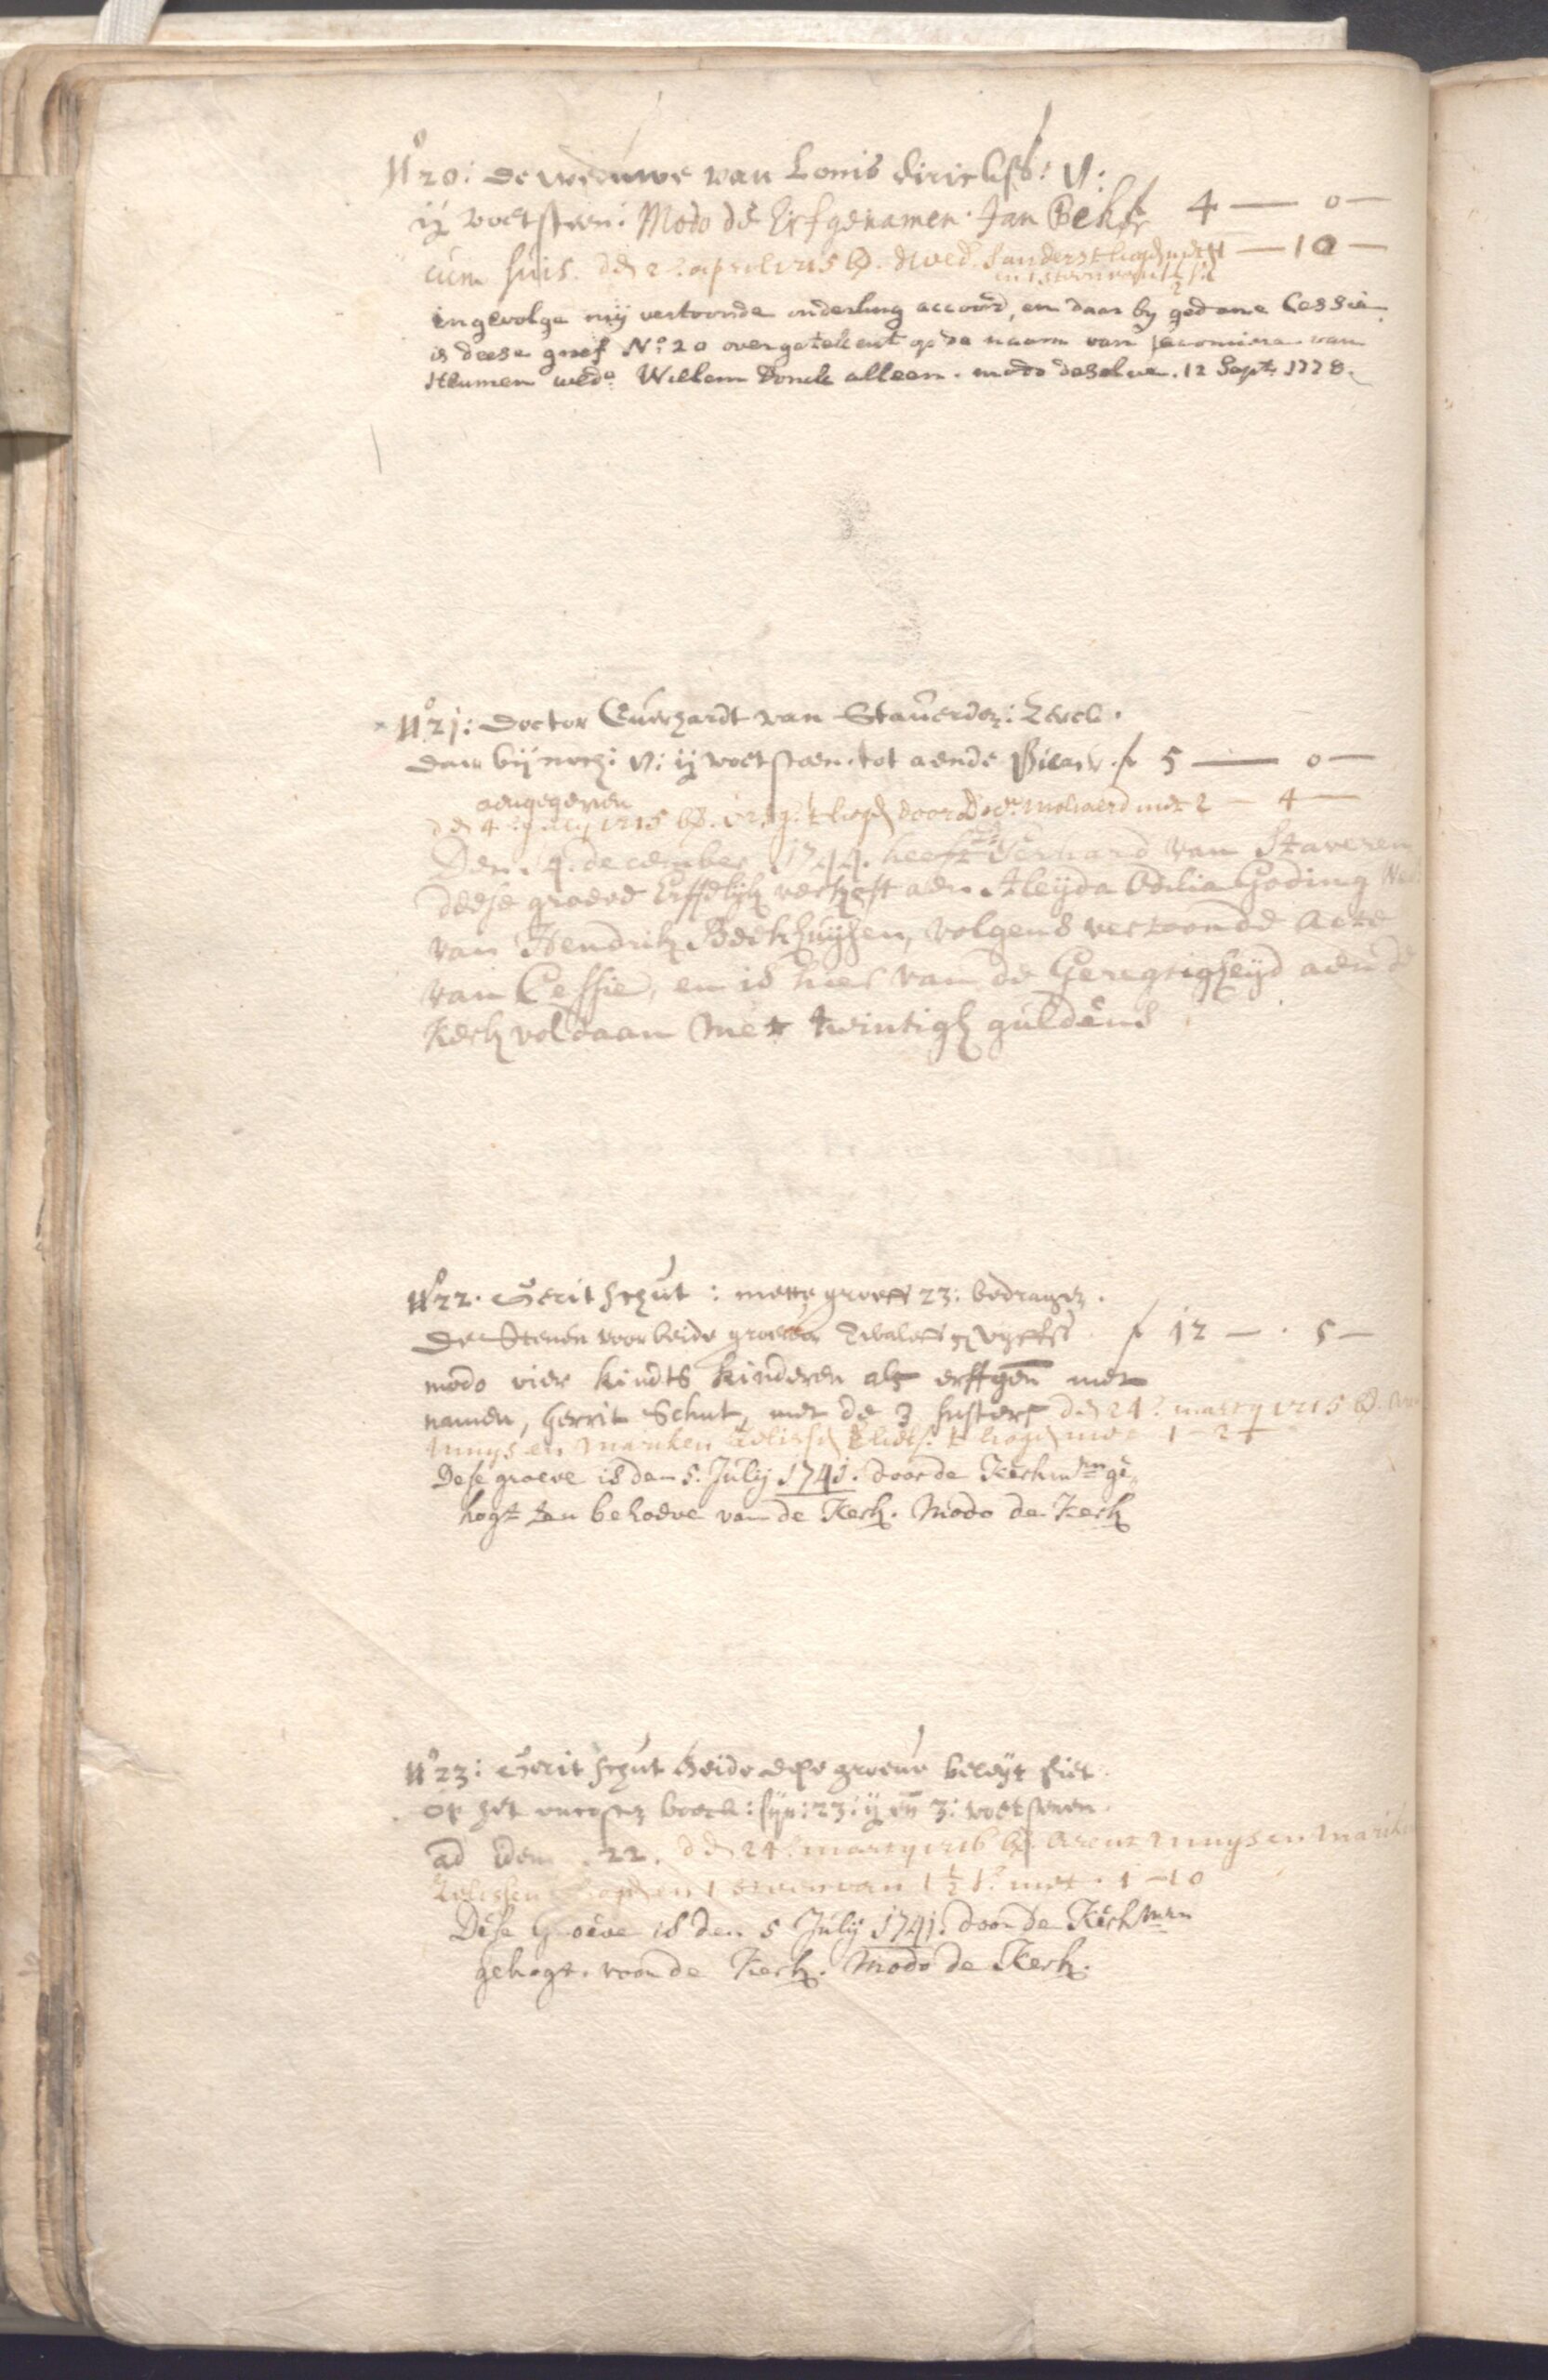 No 20: de weduwe van Lonis Diricksz: V:
ij voetsteen: Modo de Erfgenamen Jan Bekker 4 — 0 —
cum suis. dd 22 april 1715 wed. Sanders met 1 — 10 —
ingevolge mij vertoonde onderling accoord, en daar by gedane Cessie
is deese graef No: 20 overgetekent op de naam van Jacomina van
Heumen wede: Willem Donck alleen. modo deselve. 12 Sept. 1778.
No 21: Doctor Everhardt van Staverden:
daer bij noch: V: ij voetsteen tot aende 5 — 0 —
aengegeven
dd 4 1715 door met 2 — 4 —
Den 4. december 1744. heeft Gerhard van Staveren
deese groeve Erffelijk verkoft aen Aleyda Odilia Goding
van Hendrik Beekhuysen, volgens vertoonde Acte
van Cessie, en is hier van de Geregtigheyd aen de
Kerk voldaan met twintigh guldens
No 22. Gerit Schut: mette groeff 23: bedragen.
De Stenen voor beide groeven 12 — 5 —
modo vier kindts kinderen als erffgen met
namen, Gerrit Schut, met de 3 susters dd 24 marty 1715
Muys en Mariken met 1 — 2 +
Dese groeve is den 5. July 1741. door de Kerkmrn ge„
kogt ten behoeve van de Kerk. Modo de Kerk
No 23: Gerit Schut Beide dese groeve
op het boeck: fijn: 23: ij en 3: voetstenen
ad idem 22. dd 24 marty 1716 Arent Muys en Mariken
en 1 steen van 1½ met 1 — 10
Dese Groeve is den 5 July 1741. door de Kerkmrn
gekogt. voor de Kerk. Modo de Kerk.